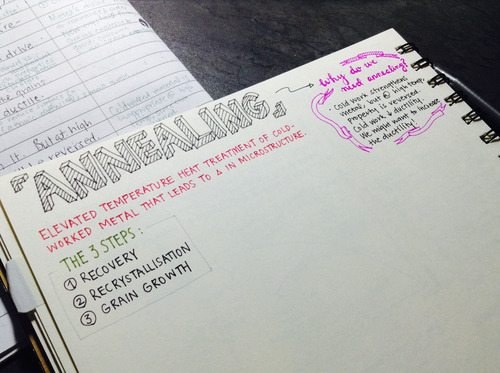 are=
drive
the grains
ductile.
It. But at high
reversed
「ANNEALING」
ELEVATED TEMPERATURE HEAT TREATMENT OF COLD-
WORKED METAL THAT LEADS TO Δ IN MICROSTRUCTURE.
THE 3 STEPS:
① RECOVERY
② RECRYSTALLISATION
③ GRAIN GROWTH
Why do we
need annealing?
· Cold work strengthens
metal, but @ high temp,
property is reversed.
· Cold work ↓ ductility.
We might want to increase
the ductility!